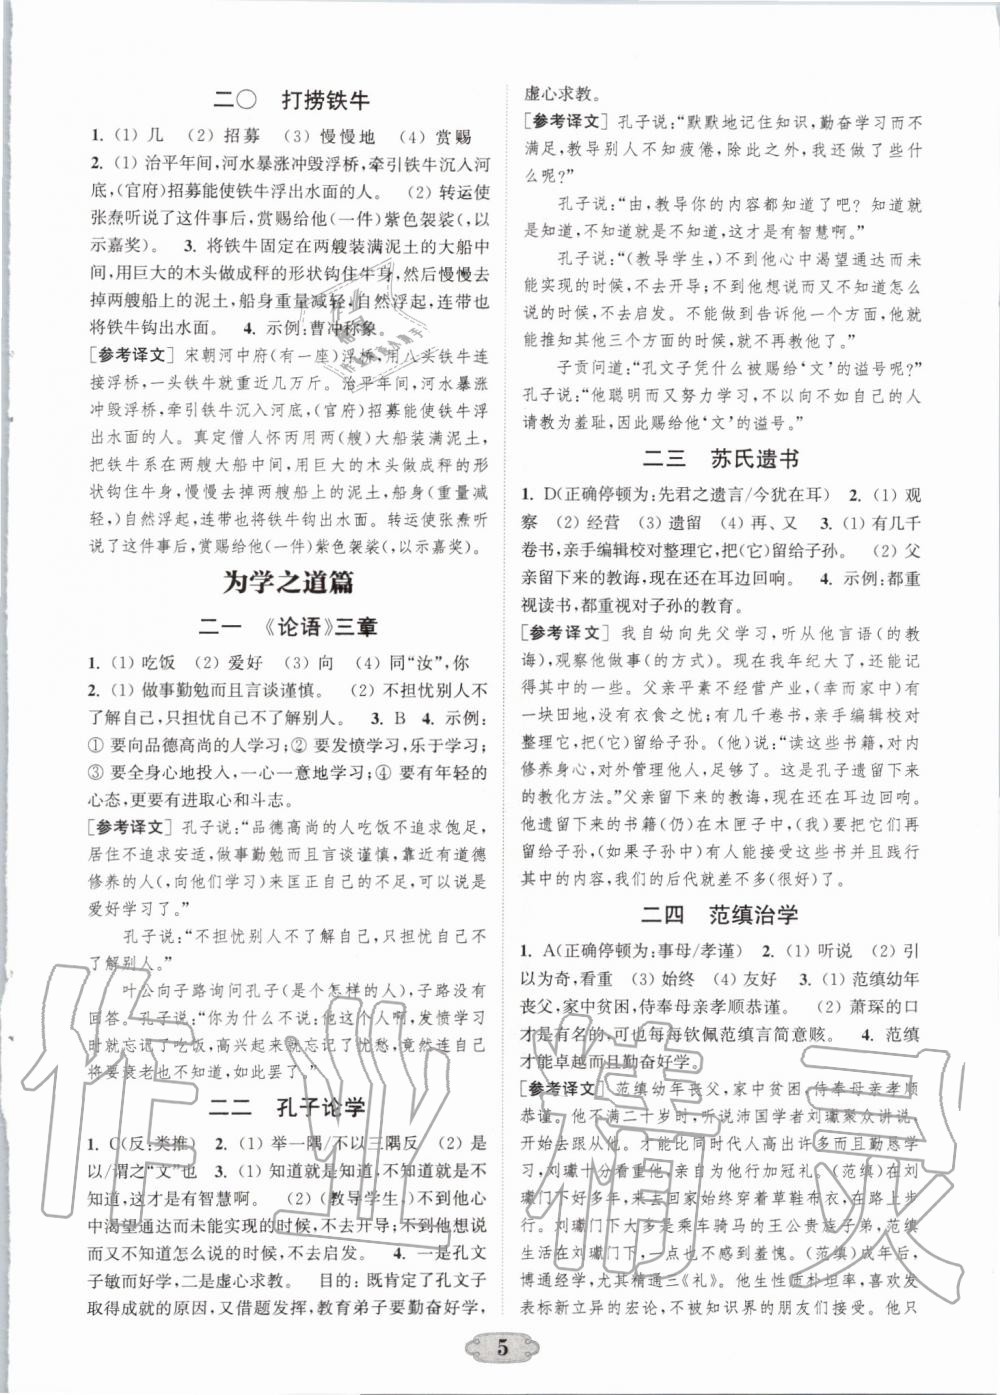 二〇　打捞铁牛
1. (1) 几　(2) 招募　(3) 慢慢地　(4) 赏赐
2. (1) 治平年间,河水暴涨冲毁浮桥,牵引铁牛沉入河
底,(官府)招募能使铁牛浮出水面的人。　(2) 转运使
张焘听说了这件事后,赏赐给他(一件)紫色袈裟(,以
示嘉奖)。　3. 将铁牛固定在两艘装满泥土的大船中
间,用巨大的木头做成秤的形状钩住牛身,然后慢慢去
掉两艘船上的泥土,船身重量减轻,自然浮起,连带也
将铁牛钩出水面。　4. 示例:曹冲称象。
[参考译文] 宋朝河中府(有一座)浮桥,用八头铁牛连
接浮桥,一头铁牛就重近几万斤。治平年间,河水暴涨
冲毁浮桥,牵引铁牛沉入河底,(官府)招募能使铁牛浮
出水面的人。真定僧人怀丙用两艘大船装满泥土,
把铁牛系在两艘大船中间,用巨大的木头做成秤的形
状钩住牛身,慢慢去掉两艘船上的泥土,(船身重量减
轻,)自然浮起,也将铁牛钩出水面。转运使张焘听
说了这件事后,赏赐给他(一件)紫色袈裟(,以示嘉奖)。
为学之道篇
二一　《论语》三章
1. (1) 吃饭　(2) 爱好　(3) 向　(4) 同“汝”,你
2. (1) 做事勤勉而且言谈谨慎。　(2) 不担忧别人不
了解自己,只担忧自己不了解别人。　3. B　4. 示例:
① 要向品德高尚的人学习;② 要发愤学习,乐于学习;
③ 要全身心地投入,一心一意地学习;④ 要有年轻的
心态,更要有进取心和斗志。
[参考译文] 孔子说:“品德高尚的人吃饭不追求饱足,
居住不追求安适,做事勤勉而且言谈谨慎,靠近有道德
修养的人(,向他们学习)来匡正自己的不足,可以说是
爱好学习了。”
孔子说:“不担忧别人不了解自己,只担忧自己不
了解别人。”
叶公向子路询问孔子(是个怎样的人),子路没有
回答。孔子说:“你为什么不说:他这个人啊,发愤学习
时就忘记了吃饭,高兴起来就忘记了忧愁,竟然连自己
将要衰老也不知道,如此罢了。”
二二　孔子论学
1. C(反:类推)　2. (1) 举一隅/不以三隅反　(2) 是
以/谓之“文”也　3. (1) 知道就是知道,不知道就是不
知道,这才是有智慧啊。　(2) (教导学生,)不到他心
中渴望通达而未能实现的时候,不去开导;不到他想说
而又不知道怎么说的时候,不去启发。　4. 一是孔文
子敏而好学,二是虚心求教。　目的:既肯定了孔文子
取得成就的原因,又借题发挥,教育弟子要勤奋好学,
虚心求教。
[参考译文] 孔子说:“默默地记住知识,勤奋学习而不
满足,教导别人不知疲倦,除此之外,我还做了些什
么呢?”
孔子说:“由,教导你的内容都知道了吧?知道就
是知道,不知道就是不知道,这才是有智慧啊。”
孔子说:“(教导学生,)不到他心中渴望通达而未
能实现的时候,不去开导;不到他想说而又不知道怎么
说的时候,不去启发。不能做到告诉他一个方面,他就
能推知其他三个方面的时候,就不再教他了。”
子贡问道:“孔文子凭什么被赐给‘文’的谥号呢?”
孔子说:“他聪明而又努力学习,不以向不如自己的人
请教为羞耻,因此赐给他‘文’的谥号。”
二三　苏氏遗书
1. D(正确停顿为:先君之遗言/今犹在耳)　2. (1) 观
察　(2) 经营　(3) 遗留　(4) 再、又　3. (1) 有几千
卷书,亲手编辑校对整理它,把(它)留给子孙。　(2) 父
亲留下来的教诲,现在还在耳边回响。　4. 示例:都重
视读书,都重视对子孙的教育。
[参考译文] 我自幼向先父学习,听从他言语(的教
诲),观察他做事(的方式)。现在我年纪大了,还能记
得其中的一些。父亲平素不经营产业,(幸而家中)有
一块田地,没有衣食之忧;有几千卷书,亲手编辑校对
整理它,把(它)留给子孙。(他)说:“读这些书籍,对内
修养身心,对外管理他人,足够了。这是孔子遗留下来
的教化方法。”父亲留下来的教诲,现在还在耳边回响。
他遗留下来的书籍(仍)在木匣子中,(我)要把它们再
留给子孙,(如果子孙中)有人能接受这些书并且践行
其中的内容,我们的后代就差不多(很好)了。
二四　范缜治学
1. A(正确停顿为:事母/孝谨)　2. (1) 听说　(2) 引
以为奇,看重　(3) 始终　(4) 友好　3. (1) 范缜幼年
丧父,家中贫困,侍奉母亲孝顺恭谨。　(2) 萧琛的口
才是有名的,可也每每钦佩范缜言简意赅。　4. 范缜
才能卓越而且勤奋好学。
[参考译文] 范缜幼年丧父,家中贫困,侍奉母亲孝顺
恭谨。他不满二十岁时,听说沛国学者刘瓛聚众讲说,
开始去跟从他,才能比同时代人高出许多而且勤恳学
习,刘瓛十分看重他,亲自为他行加冠礼。(范缜)在刘
瓛门下好多年,来去回家始终穿着草鞋布衣,在路上步
行。刘瓛门下大多是乘车骑马的王公贵族子弟,范缜
生活在刘瓛门下,一点也不感到羞愧。(范缜)成年后,
博通经术,尤其精通三《礼》。他生性质朴坦率,喜欢发
表标新立异的宏论,不被知识界的朋友们接受。他只
5
作业精灵